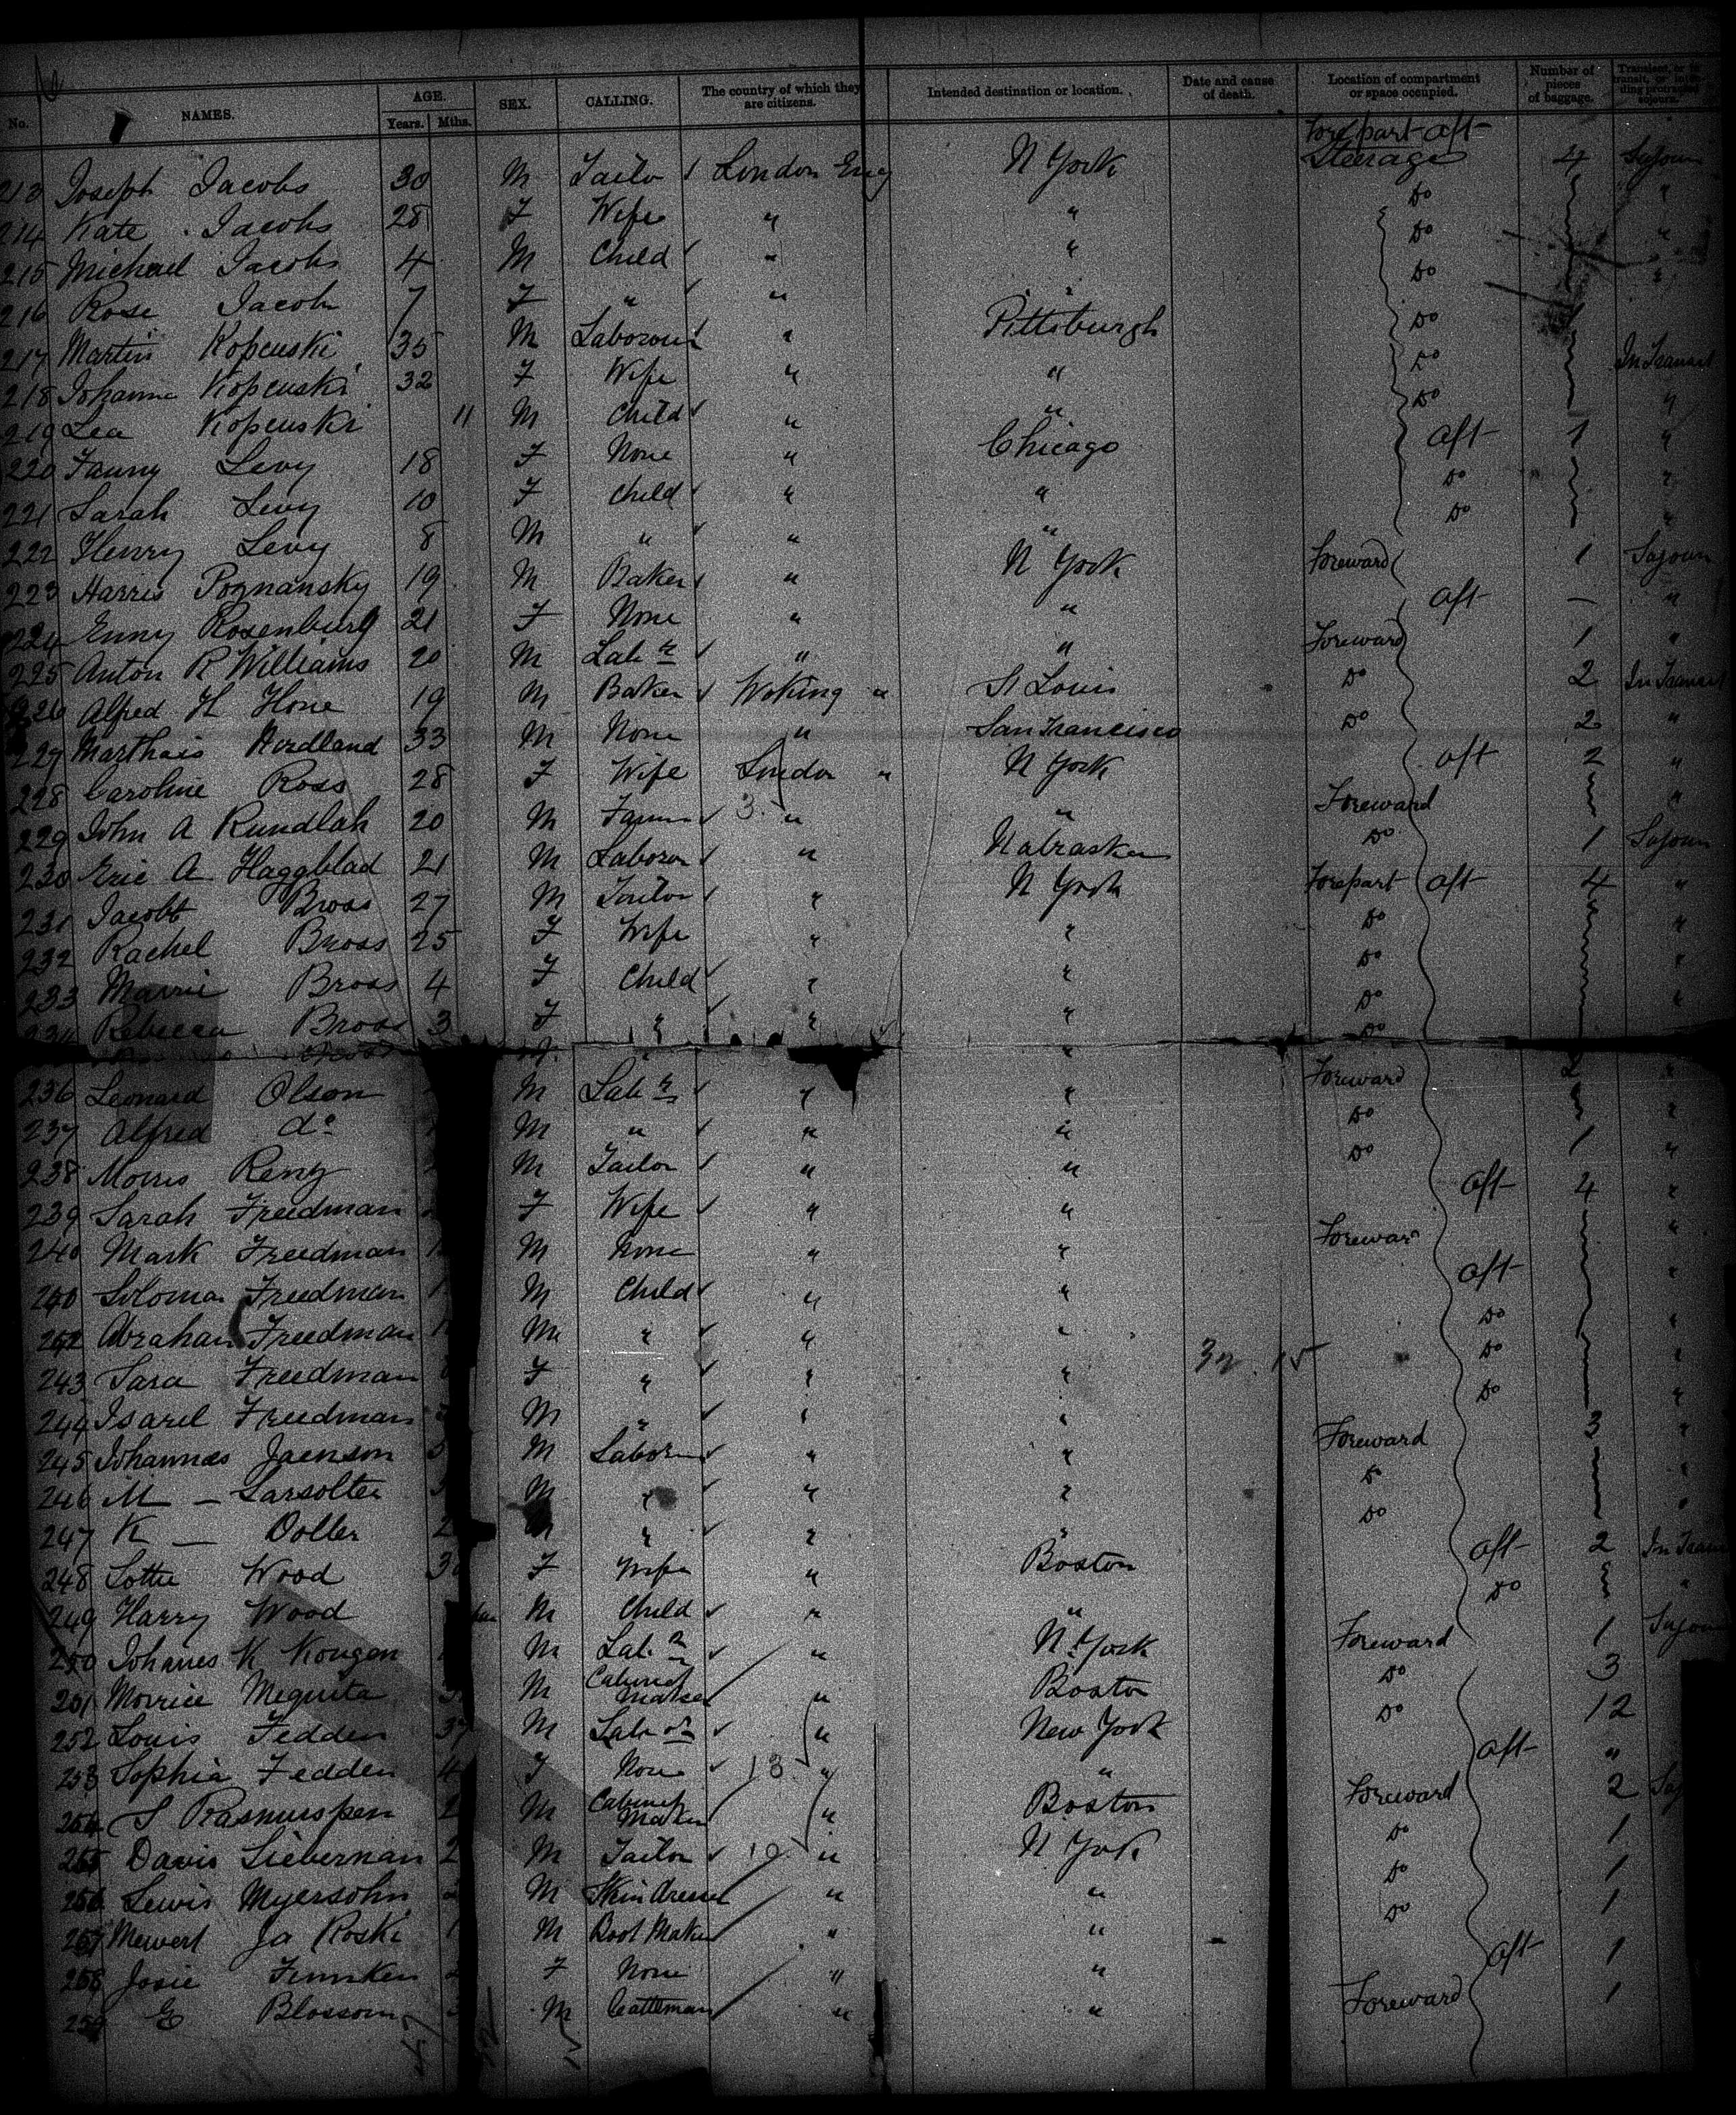 No. NAMES. AGE. Years. Mths. SEX. CALLING. The country of which they are citizens. Intended destination or location. Date and cause of death. Location of compartment or space occupied. Number of pieces of baggage. Transient, or in transit, or intending protracted sojourn.
Forepart aft
213 Joseph Jacobs 30 M Tailo London Eng N York Steerage 4 Sojourn
214 Kate Jacobs 28 F Wife " " Do "
215 Michael Jacobs 4 M Child " " Do "
216 Rose Jacobs 7 F " " " Do "
217 Martin Kopenski 35 M Labourer " Pittsburgh Do In Transit
218 Johanna Kopenski 32 F Wife " " Do "
219 Lea Kopenski 11 M Child " " Do "
220 Fanny Levy 18 F None " Chicago aft 1 "
221 Sarah Levy 10 F Child " " Do "
222 Henry Levy 8 M " " " Do "
223 Harris Poznansky 19 M Baker " N York Foreward 1 Sojourn
224 Enny Rosenburg 21 F None " " aft — "
225 Anton R Williams 20 M Labr " " Foreward 1 "
226 Alfred H Hone 19 M Baker Woking " St Louis Do 2 In Transit
227 Marthais Nordland 33 M None " San Francisco Do 2 "
228 Caroline Ross 28 F Wife London " N York aft 2 "
229 John A Rundlah 20 M Farmer 3 " " Foreward "
230 Eric A Haggblad 21 M Laborer " Nabraska Do 1 Sojourn
231 Jacob Bross 27 M Tailor " N York Forepart aft 4 "
232 Rachel Bross 25 F Wife " " Do "
233 Bross 4 F Child " " Do "
234 Rebecca Bross 3 F " " " Do "
236 Leonard Olson M Labr " " Foreward 2 "
237 Alfred do M " " " Do "
238 Morris Reny M Tailor " " Do 1 "
239 Sarah Freedman F Wife " " aft 4 "
240 Mark Freedman M None " " Foreward "
240 Soloman Freedman M Child " " aft "
242 Abraham Freedman M " " " Do "
243 Sara Freedman F " " " Do "
244 Isarel Freedman M " " " Do "
245 Johannes Jaenson M Laborer " " Foreward 3 "
246 M — Larsolter M " " " Do "
247 K — Doller M " " " Do "
248 Lottie Wood F Wife " Boston aft 2 In Trans
249 Harry Wood M Child " " Do "
250 Johanes K Kongen M Labr " N. York Foreward 1 Sojourn
251 Morrice Mequita M Cabinet Maker " Boston Do 3
252 Louis Fedden 37 M Labor " New York Do 12
253 Sophia Fedden 4 F None 13 " " aft "
254 S Rasmuspen M Cabinet Maker " Boston Foreward 2
255 Davis Lieberman 2 M Tailor 10 " N York Do 1
256 Lewis Myersohn M Skin dresser " " Do 1
257 Mewert Ja Roski M Boot Maker " " Do 1
258 Josie Funnken F None " " aft 1
259 E Blossom M Cattleman " " Foreward 1